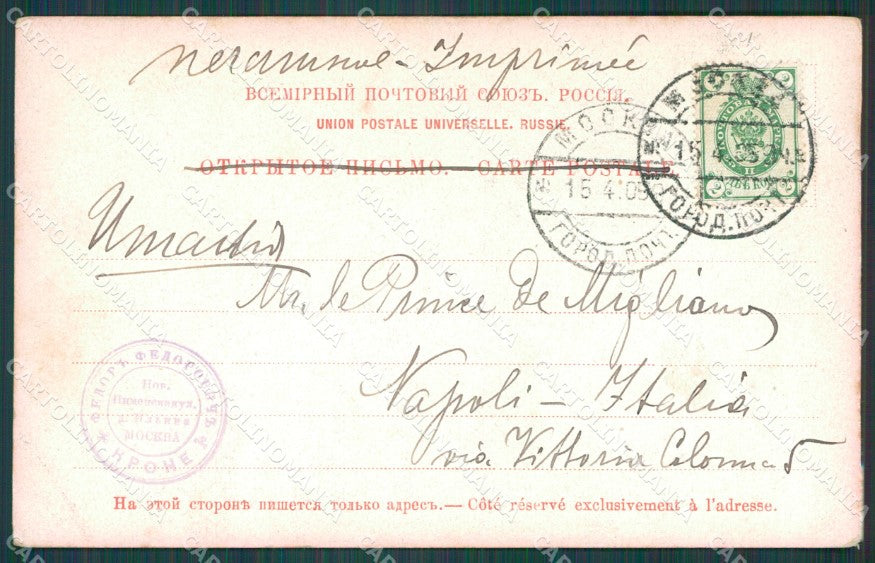 печатное - Imprimée
ВСЕМІРНЫЙ ПОЧТОВЫЙ СОЮЗЪ. РОССІЯ.
UNION POSTALE UNIVERSELLE. RUSSIE.
ОТКРЫТОЕ ПИСЬМО. - CARTE POSTALE.
МОСКВА
15 4 05
ГОРОД. ПОЧТ.
МОСКВА
15 4 05
ГОРОД. ПОЧТ.
2 2
Италія
Mr. le Prince de Migliano
Napoli - Italia
via Vittoria Colonna 5
ФЕДОРЪ ФЕДОСОВИЧЪ
КРОНЕ
Нов.
МОСКВА
На этой сторонѣ пишется только адресъ. — Côté réservé exclusivement à l'adresse.
CARTOLINOMANIA